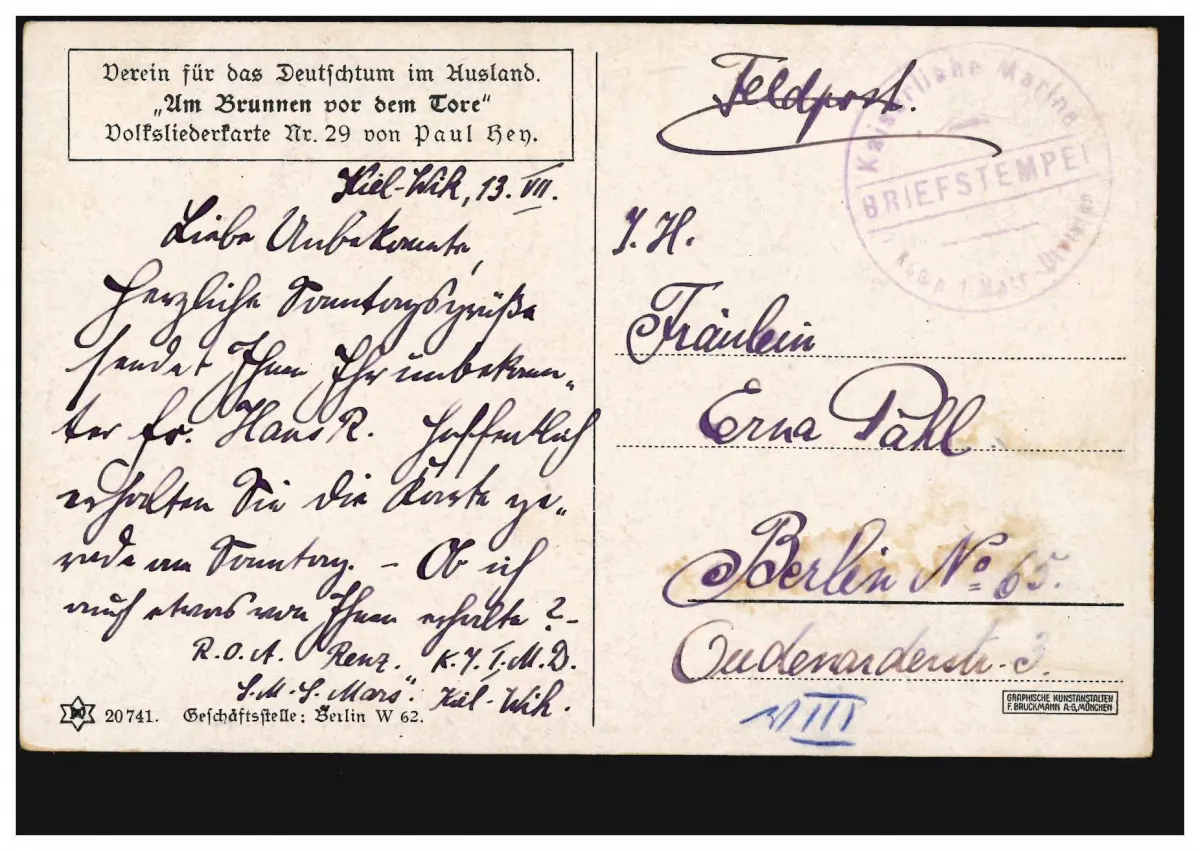 Verein für das Deutschtum im Ausland.
„Am Brunnen vor dem Tore“
Volksliederkarte Nr. 29 von Paul Hey.
Kiel-Wik, 13. VII.
Liebe Unbekannte,
Herzliche Sonntagsgrüße
sendet Ihnen Ihr unbekann„
ter Fr. Hans R. Hoffentlich
erhalten Sie die Karte ge„
rade am Sonntag. – Ob ich
auch etwas von Ihnen erhalte? –
R.O.A. Renz. K. I. M. D.
S.M.S. „Mars“. Kiel-Wik.
20741. Geschäftsstelle: Berlin W 62.
Feldpost.
Kaiserliche Marine
BRIEFSTEMPEL
Komp. I. Matr. Division
I. H.
Fräulein
Erna Pahl
Berlin No 65.
Oudenarderstr. 3.
VIII
GRAPHISCHE KUNSTANSTALTEN
F. BRUCKMANN A.-G., MÜNCHEN